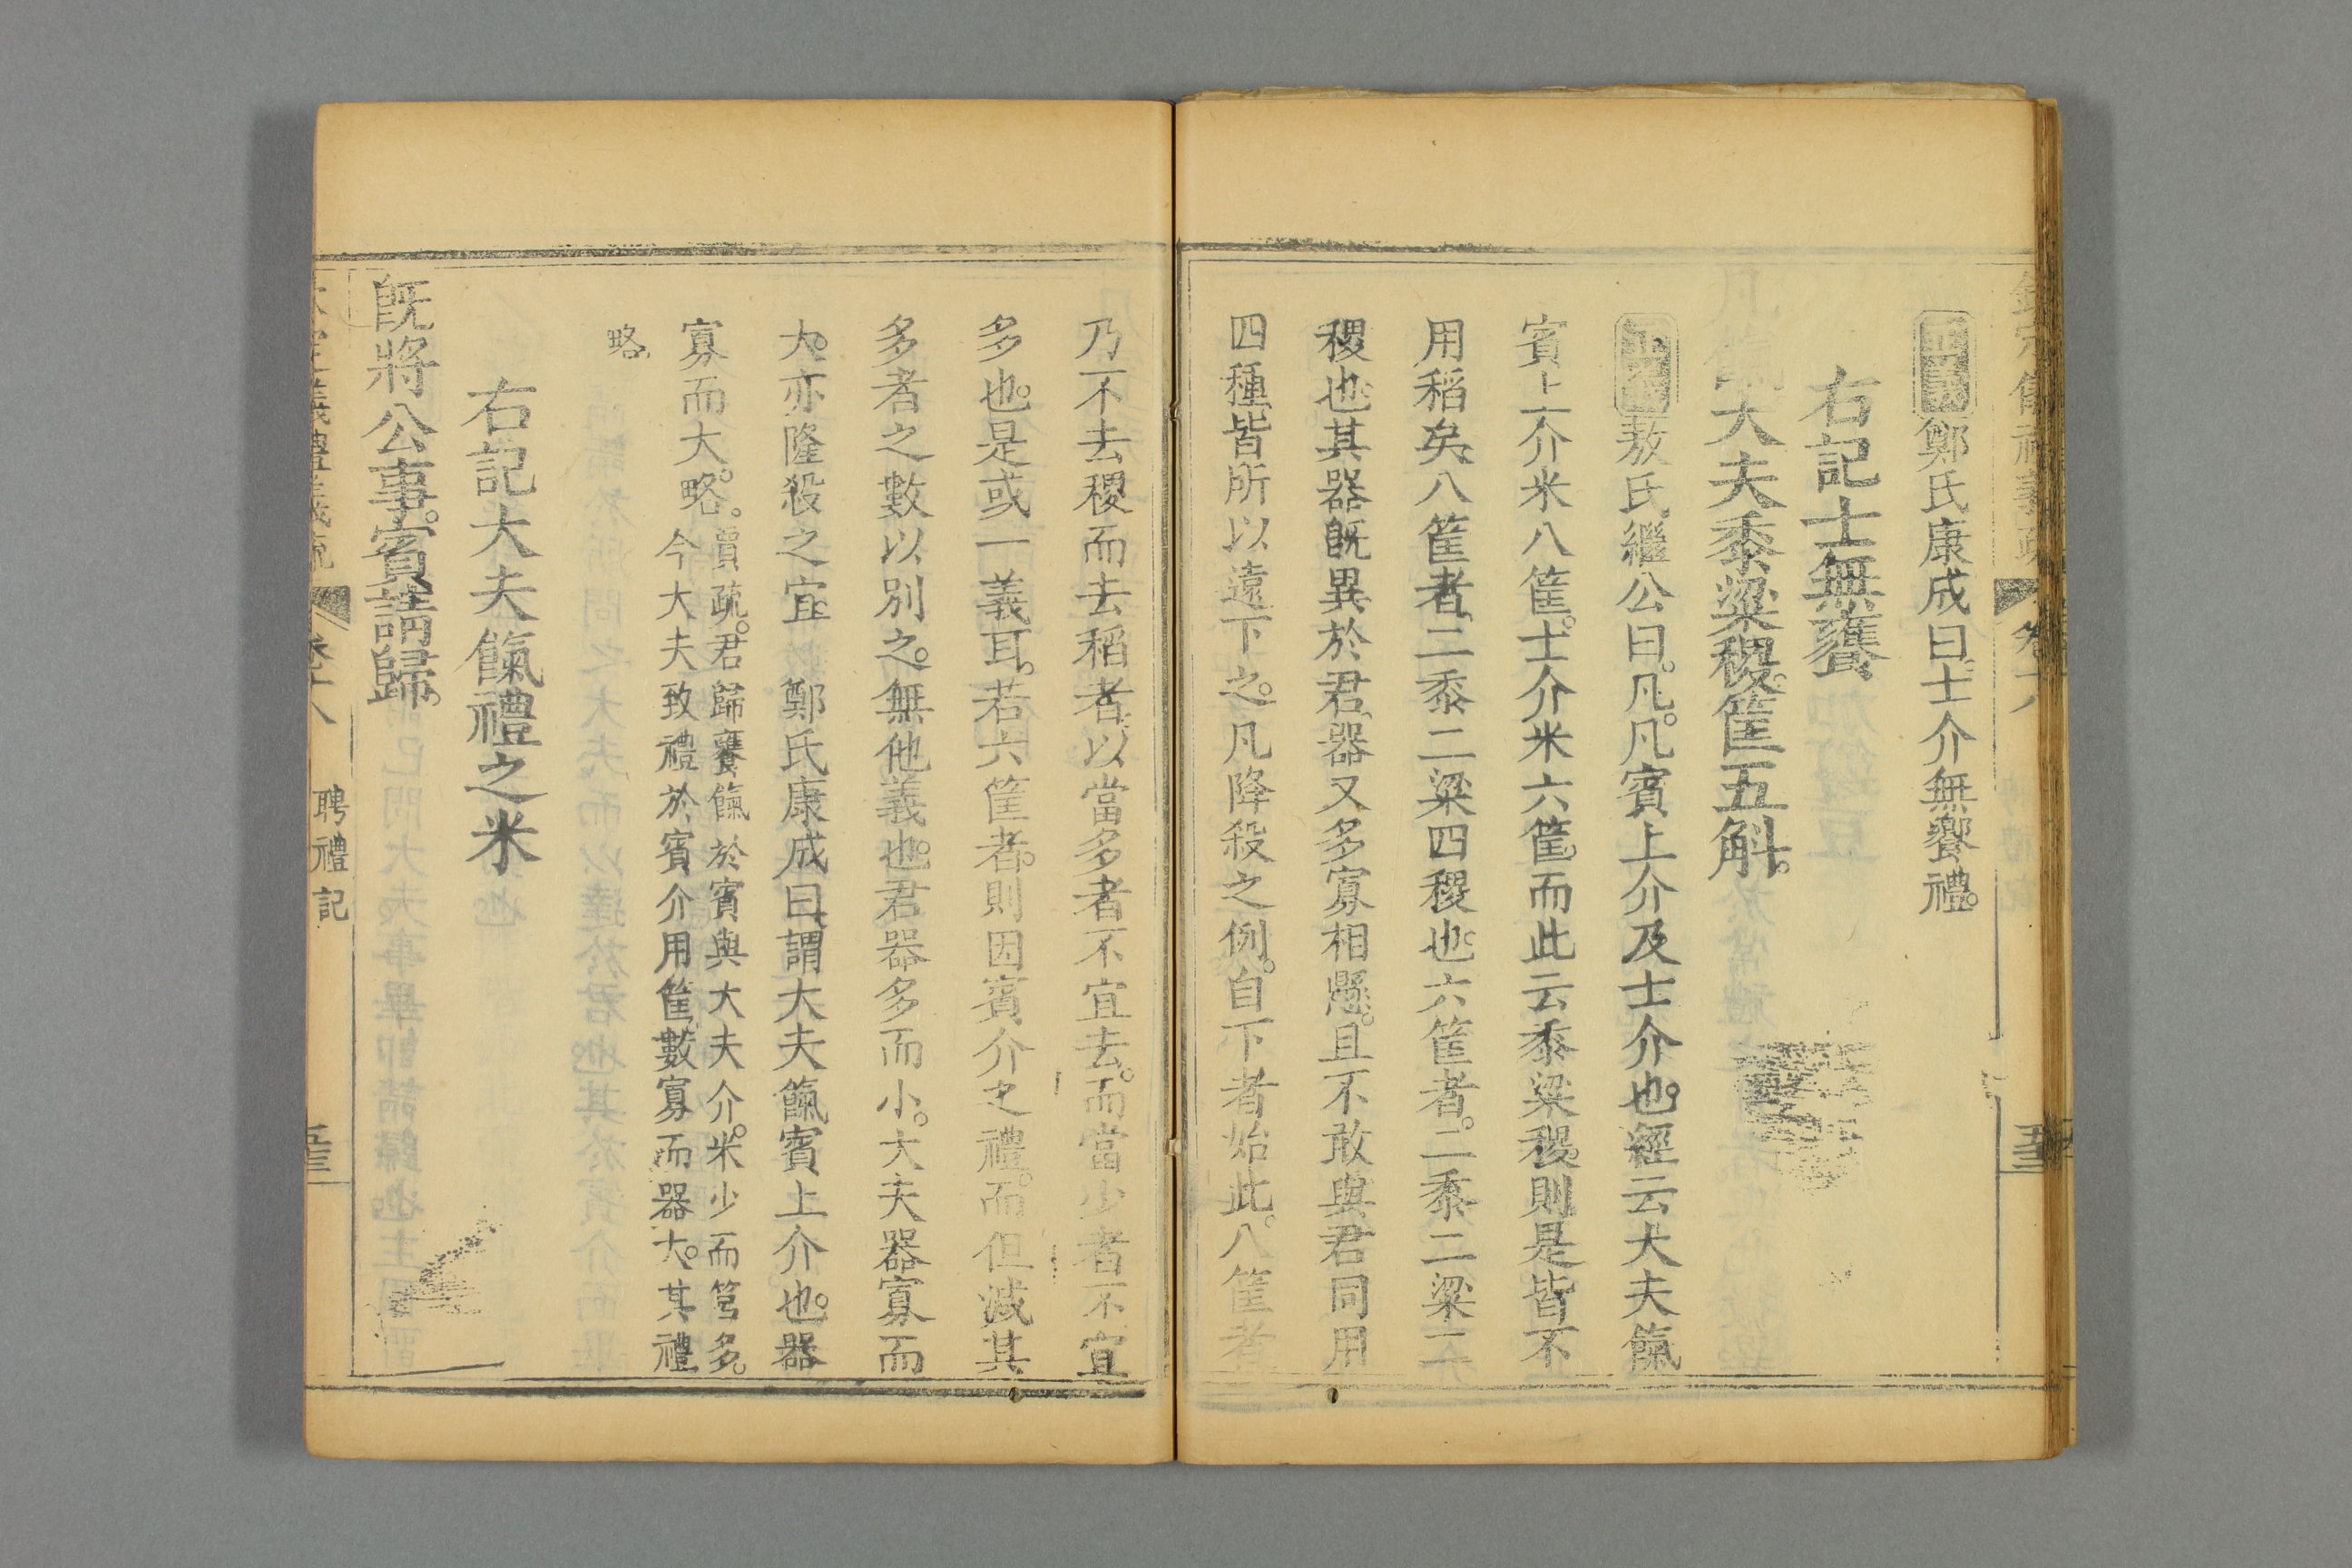 鄭氏康成曰士介無饔禮。
右記士無饔
大夫黍粱稷。筐五斛。
敖氏繼公曰。凡。凡賓上介及士介也。經云大夫餼
賓上介米八筐。士介米六筐。而此云黍粱稷。則是皆不
用稻矣。八筐者。二黍二粱四稷也。六筐者。二黍二粱二
稷也。其器旣異於君。器又多寡相懸。且不敢與君同用
四種。皆所以遠下之。凡降殺之例。自下者始此。八筐者
乃不去稷而去稻者。以當多者不宜去。而當少者不宜
多也。是或一義耳。若六筐者。則因賓介之禮。而但減其
多者之數以別之。無他義也。君器多而小。大夫器寡而
大。亦隆殺之宜。 鄭氏康成曰。謂大夫餼賓上介也。器
寡而大。略。
賈疏。君歸饔餼於賓與大夫介。米少而筥多。
今大夫致禮於賓介用筐。數寡而器大。其禮
略。
右記大夫餼禮之米
旣將公事。賓請歸。
卷十八
聘禮記